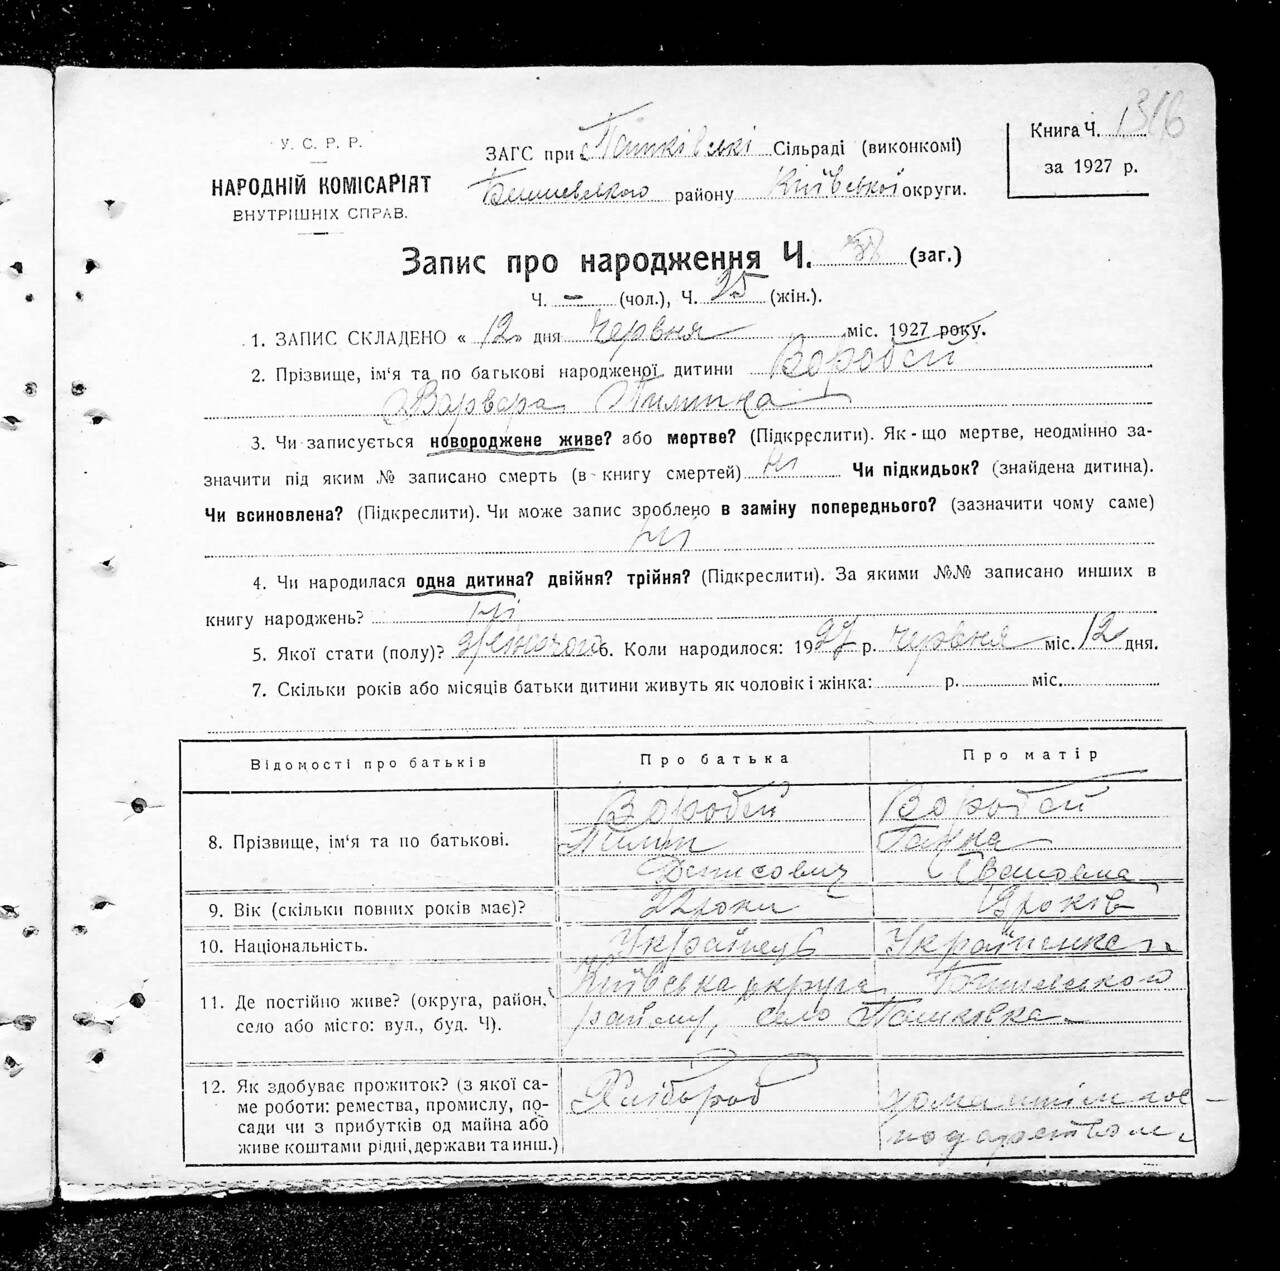 У. С. Р. Р.
НАРОДНІЙ КОМІСАРІЯТ
ВНУТРІШНІХ СПРАВ.
ЗАГС при Пашківські Сільраді (виконкомі)
Бишевського району Київської округи.
Книга Ч.
за 1927 р.
Запис про народження Ч. (заг.)
Ч. – (чол.), Ч. 25 (жін.).
1. ЗАПИС СКЛАДЕНО « 12 » дня червня міс. 1927 року.
2. Прізвище, ім'я та по батькові народженої дитини Воробей
Варвара Пилипна
3. Чи записується новороджене живе? або мертве? (Підкреслити). Як-що мертве, неодмінно за-
значити під яким № записано смерть (в книгу смертей) ні Чи підкидьок? (знайдена дитина).
Чи всиновлена? (Підкреслити). Чи може запис зроблено в заміну попереднього? (зазначити чому саме)
ні
4. Чи народилася одна дитина? двійня? трійня? (Підкреслити). За якими №№ записано инших в
книгу народжень? ні
5. Якої стати (полу)? жіночого 6. Коли народилося: 1927 р. червня міс. 12 дня.
7. Скільки років або місяців батьки дитини живуть як чоловік і жінка: р. міс.
Відомості про батьків Про батька Про матір
8. Прізвище, ім'я та по батькові. Воробей Пилип Денисович Воробей Ганна Івановна
9. Вік (скільки повних років має)? 22 роки 19 років
10. Національність. Українець Українка
11. Де постійно живе? (округа, район, Київська округа Бишевського
село або місто: вул., буд. Ч). району, село Пашковка
12. Як здобуває прожиток? (з якої са-
ме роботи: ремества, промислу, по-
сади чи з прибутків од майна або
живе коштами рідні, держави та инш.) Хлібороб домашнім гос-
подарством